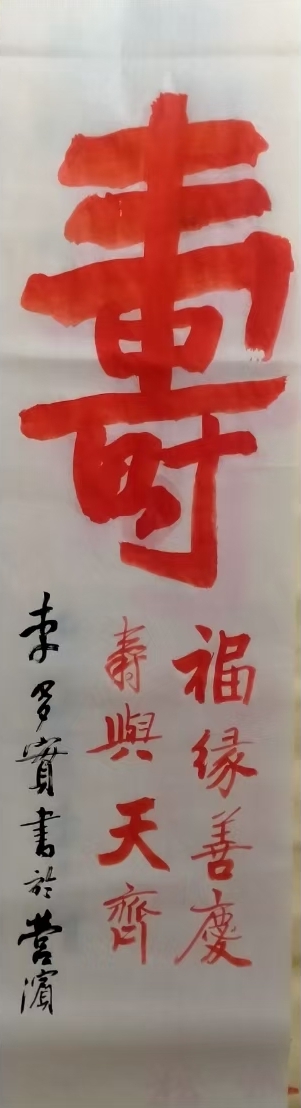 壽
福缘善慶
壽與天齊
李多實書於營濱